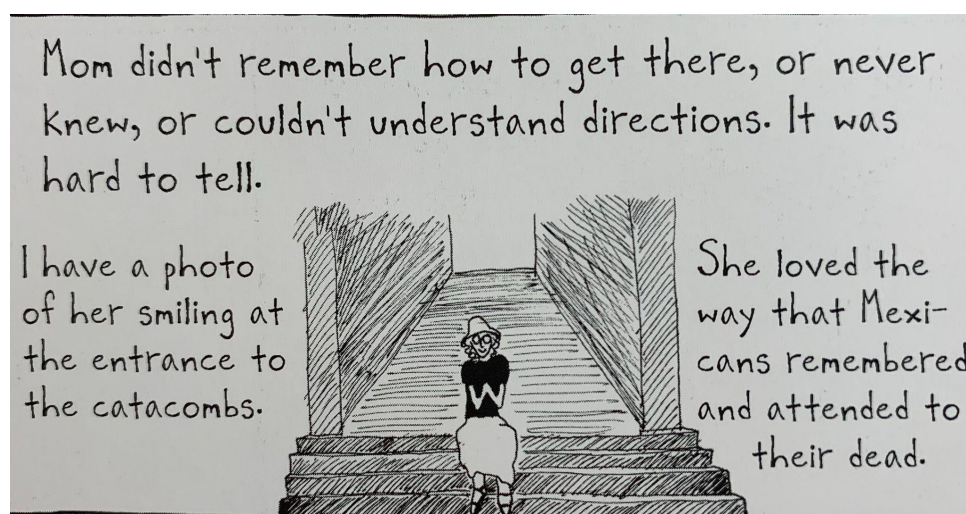 Mom didn't remember how to get there, or never
knew, or couldn't understand directions. It was
hard to tell.
I have a photo
of her smiling at
the entrance to
the catacombs.
She loved the
way that Mexi-
cans remembered
and attended to
their dead.